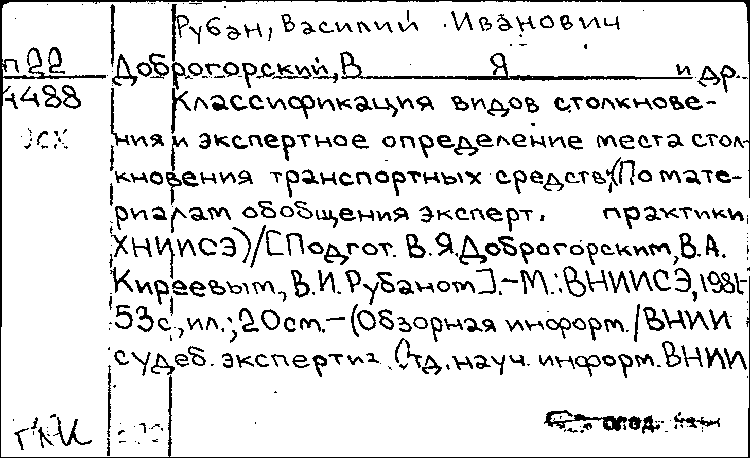 Рубан, Василий Иванович
п22 Доброгорский, В Я и др.
4488 Классификация видов столкнове-
ния и экспертное определение места стол-
кновения транспортных средств (По мате-
риалам обобщения эксперт. практики
ХНИИСЭ) / [Подгот. В.Я. Доброгорским, В.А.
Киреевым, В.И. Рубаном]. - М.: ВНИИСЭ,
53с., ил.; 20см. - (Обзорная информ. / ВНИИ
судеб. экспертиз. Отд. науч. информ. ВНИИ